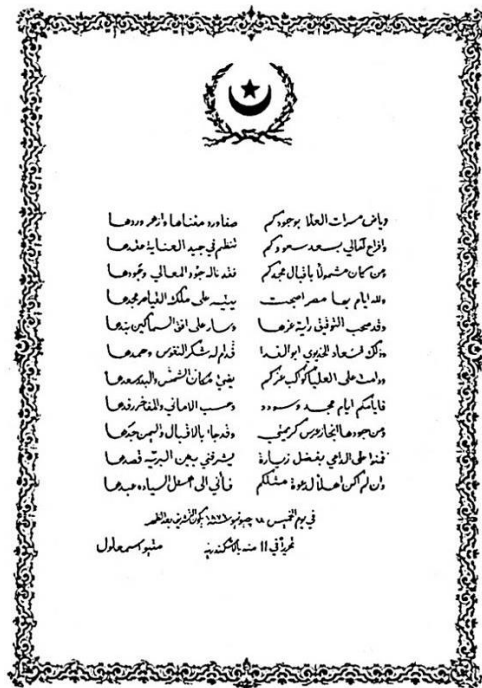 رياض مسرات العلا بوجودكم صفا ورد مغناها وازهر وردها
وافراح آمالي بسعد سعودكم تنظم في جيد العناية عقدها
ومن كان مشمولا باقبال مجدكم فقد ناله جود المعالي وجودها
ولله ايام بها مصر اصبحت يتيه على ملك القياصر مجدها
وقد صحب التوفيق راية عزها وسار على افق السماكين بندها
وذلك الخديوي ابو الفدا فدام له شكر النفوس وحمدها
ودامت على العلياء كوكب عزكم يضيء مكان الشمس والبدر سعدها
فايامكم ايام مجد وسودد وحسب الاماني والمفاخر رفدها
ومن جودها انجاز عرس كريمتي وقد جاء بالاقبال واليمن جدها
فمنوا على الداعي بفضل زيارة يشرفني بين البرية قصدها
وان لم اكن اهلا لدعوة مثلكم فاني الى اهل السيادة عبدها
في يوم الخميس ١٨ يونيو يكون التشريف بعد الظهر
تحريرا في ١١ منه بالاسكندرية